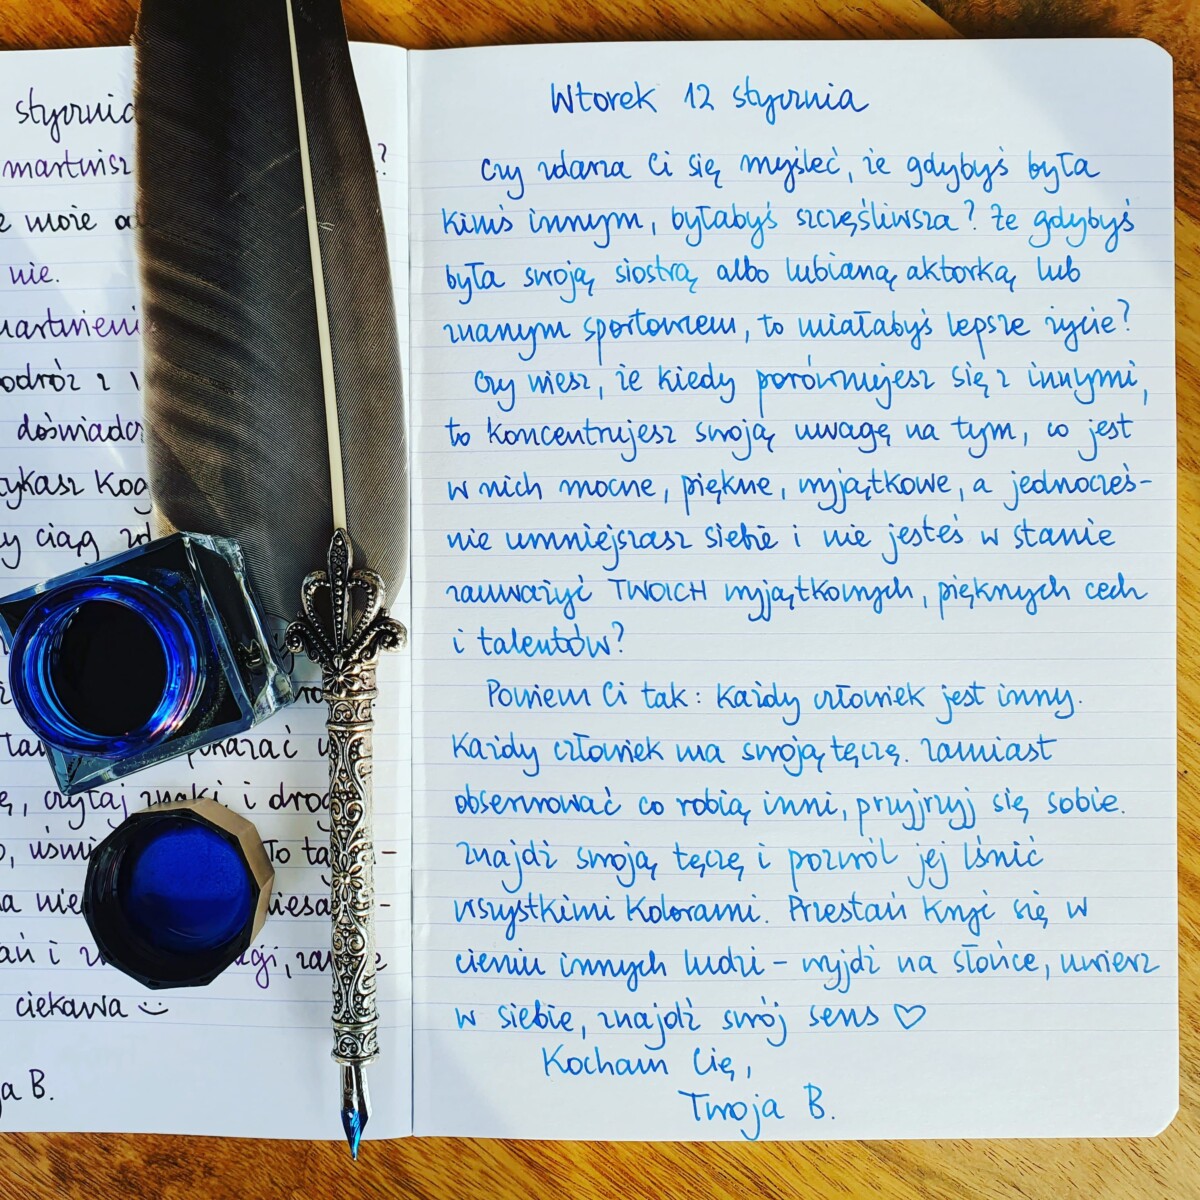 stycznia
martwisz ?
może
nie.
doświadc
ciąg
czytaj znaki i drog
To
ciekawa
B.
Wtorek 12 stycznia
Czy zdarza Ci się myśleć, że gdybyś była
kimś innym, byłabyś szczęśliwsza? Że gdybyś
była swoją siostrą albo lubianą aktorką lub
znanym sportowcem, to miałabyś lepsze życie?
Czy wiesz, że kiedy porównujesz się z innymi,
to koncentrujesz swoją uwagę na tym, co jest
w nich mocne, piękne, wyjątkowe, a jednocześ-
nie umniejszasz siebie i nie jesteś w stanie
zauważyć TWOICH wyjątkowych, pięknych cech
i talentów?
Powiem Ci tak: Każdy człowiek jest inny.
Każdy człowiek ma swoją tęczę. Zamiast
obserwować co robią inni, przyjrzyj się sobie.
Znajdź swoją tęczę i pozwól jej lśnić
wszystkimi kolorami. Przestań kryć się w
cieniu innych ludzi – wyjdź na słońce, uwierz
w siebie, znajdź swój sens ♡
Kocham Cię,
Twoja B.